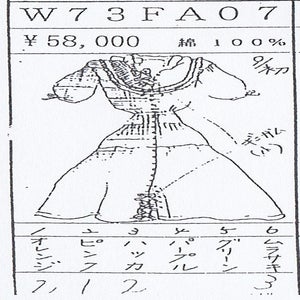 W73FA07
¥58,000 綿 100%
ギンガム
1 2 3 4 5 6
オレンジ ピンク ハッカ パープル グリーン ムラサキ